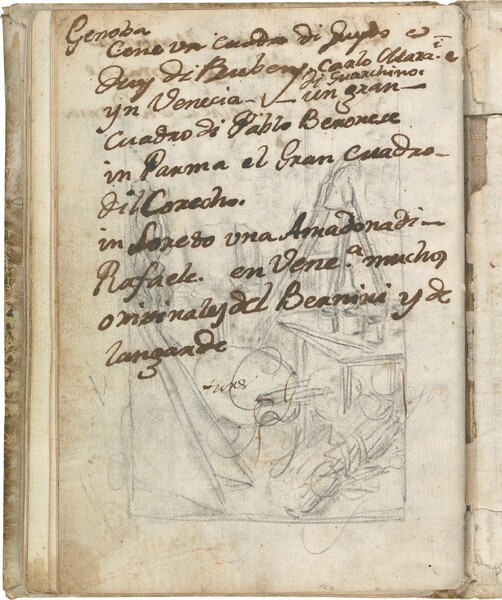 Genoba
Cene un cuadro di Guydo e
duy di Rubens, Carlo Mara.i e
di Guarchino.
yn Venecia un gran
cuadro di Pablo Beronece
in Parma el Gran cuadro
dil Corecho.
in Loreto una Amadona di
Rafaele. en Vene.a muchos
originales del Bernini y de